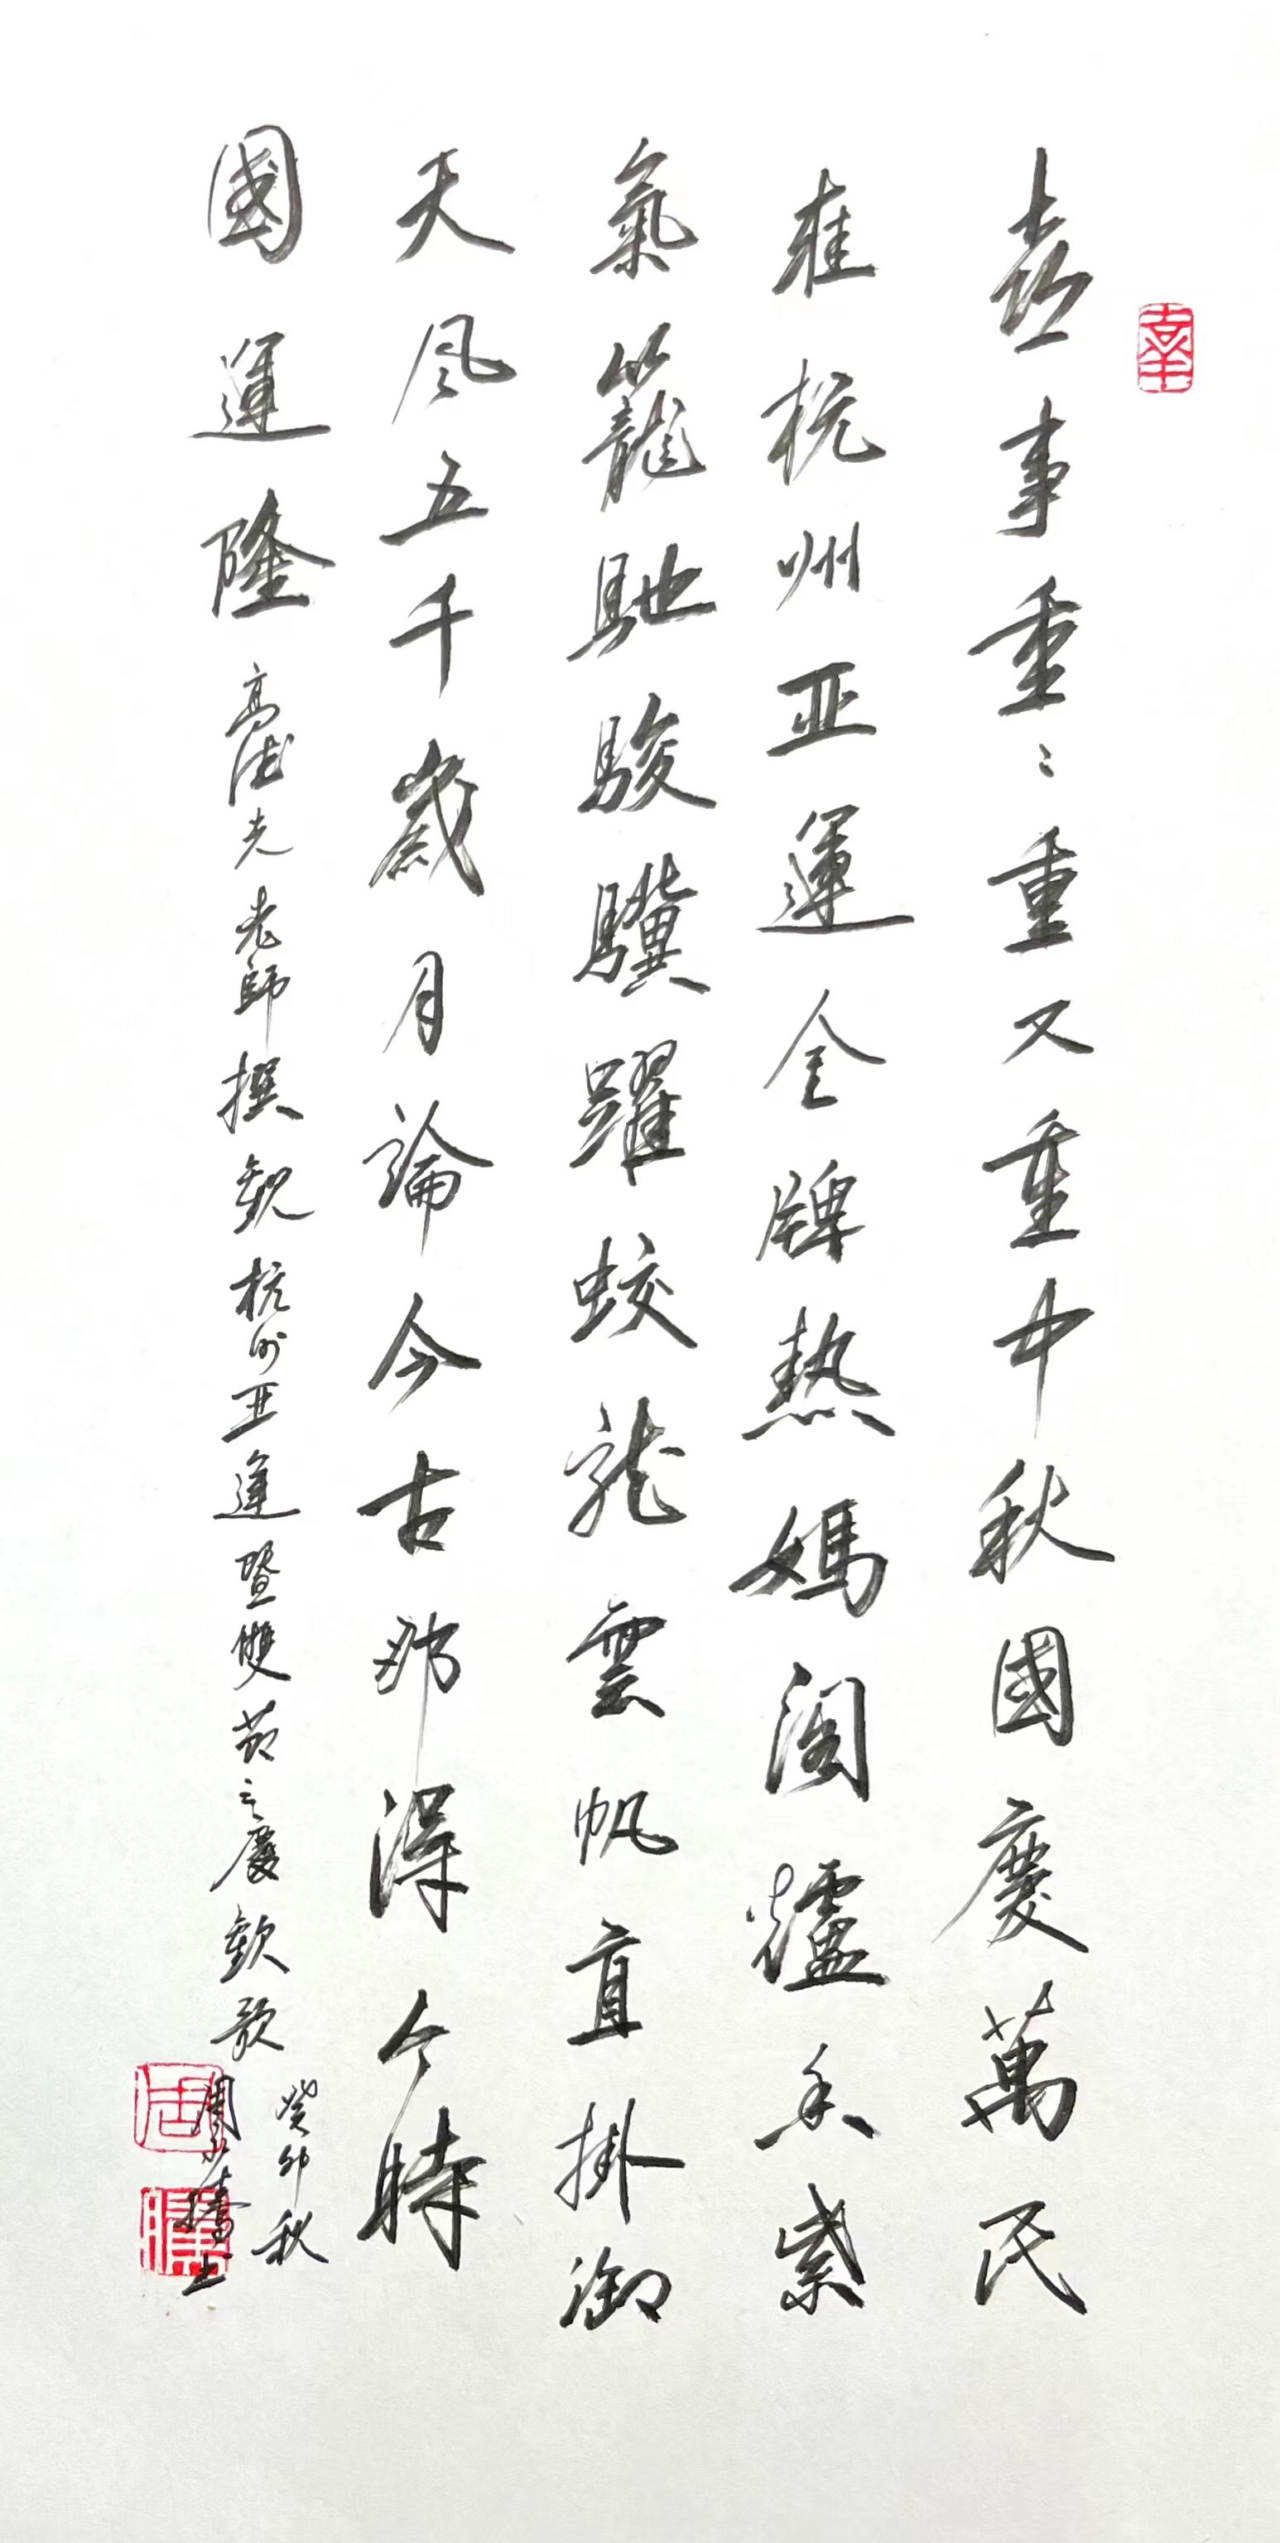 喜事重〻重又重中秋國慶萬民
雍杭州亚運金牌熱媽閣爐香紫
氣籠馳駿驥躍蛟龍雲帆直掛御
天風五千歲月論今古那得今時
國運隆
高光老師撰觀杭州亚運暨雙節之慶歡歌
癸卯秋
周